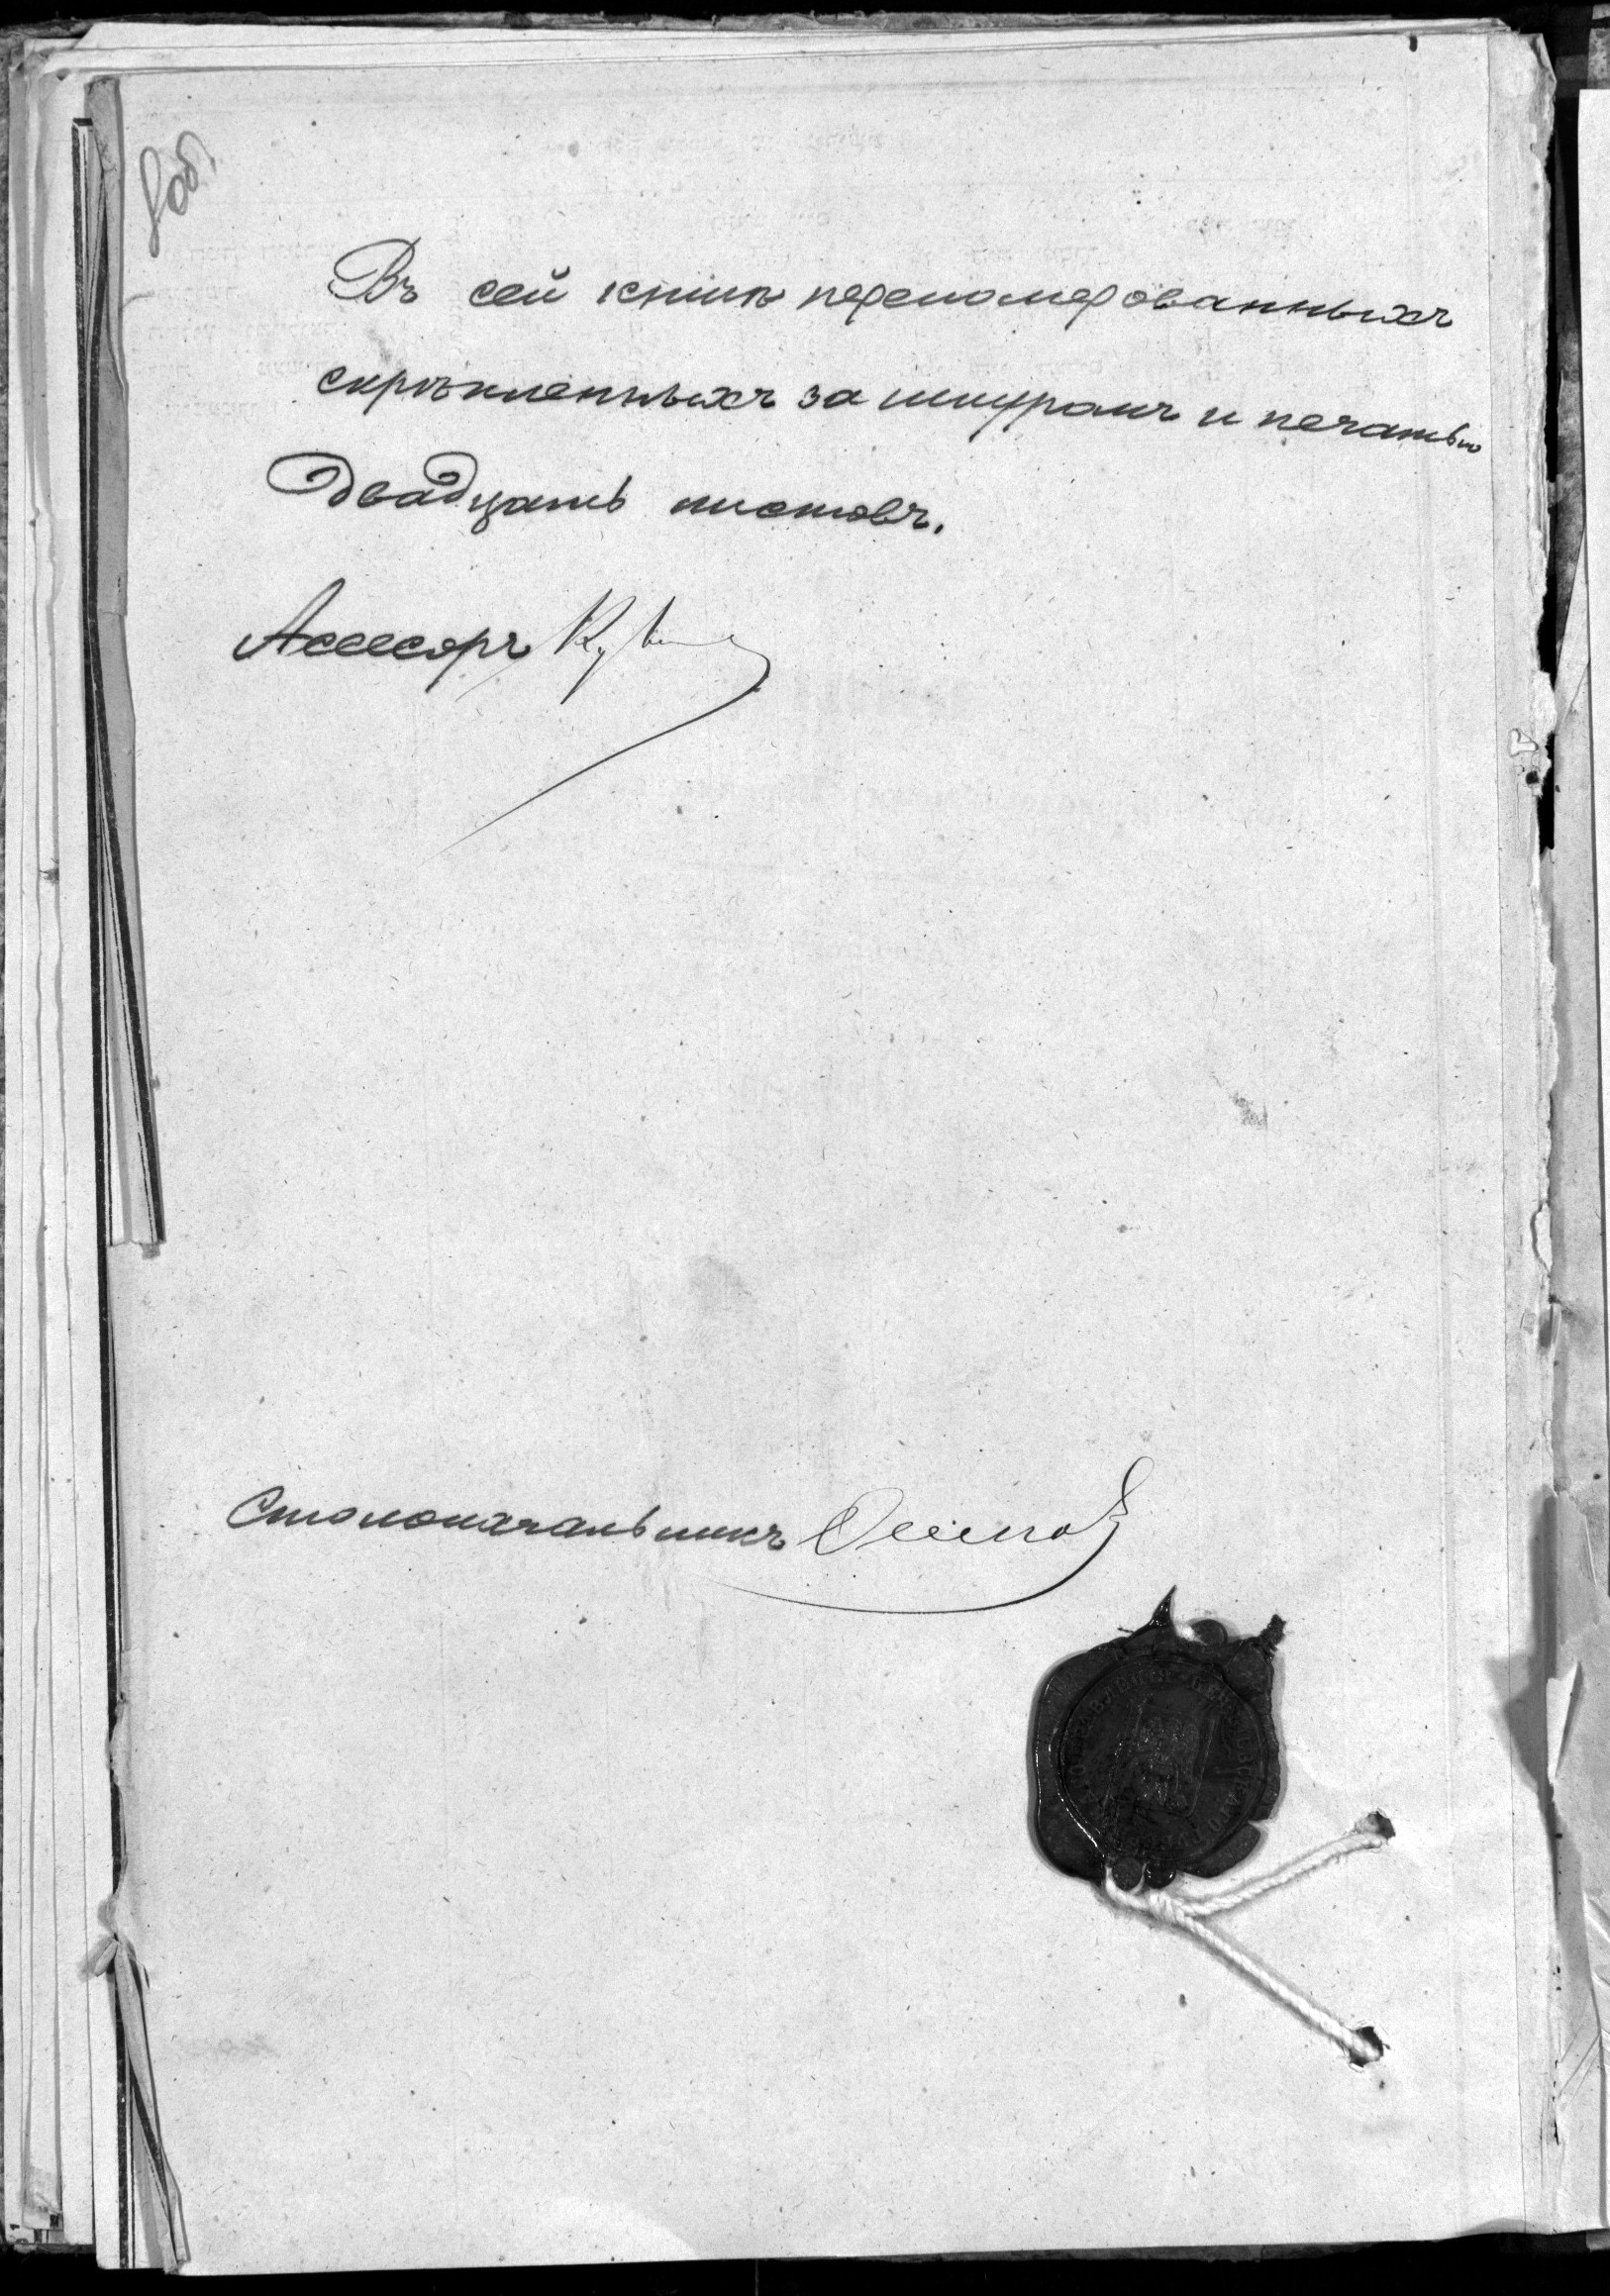 Въ сей книгѣ перепомерованныхъ
скрѣпленныхъ за шнуромъ и печатью
Двадцать листовъ.
Асесоръ
Столоначальникъ Осипов